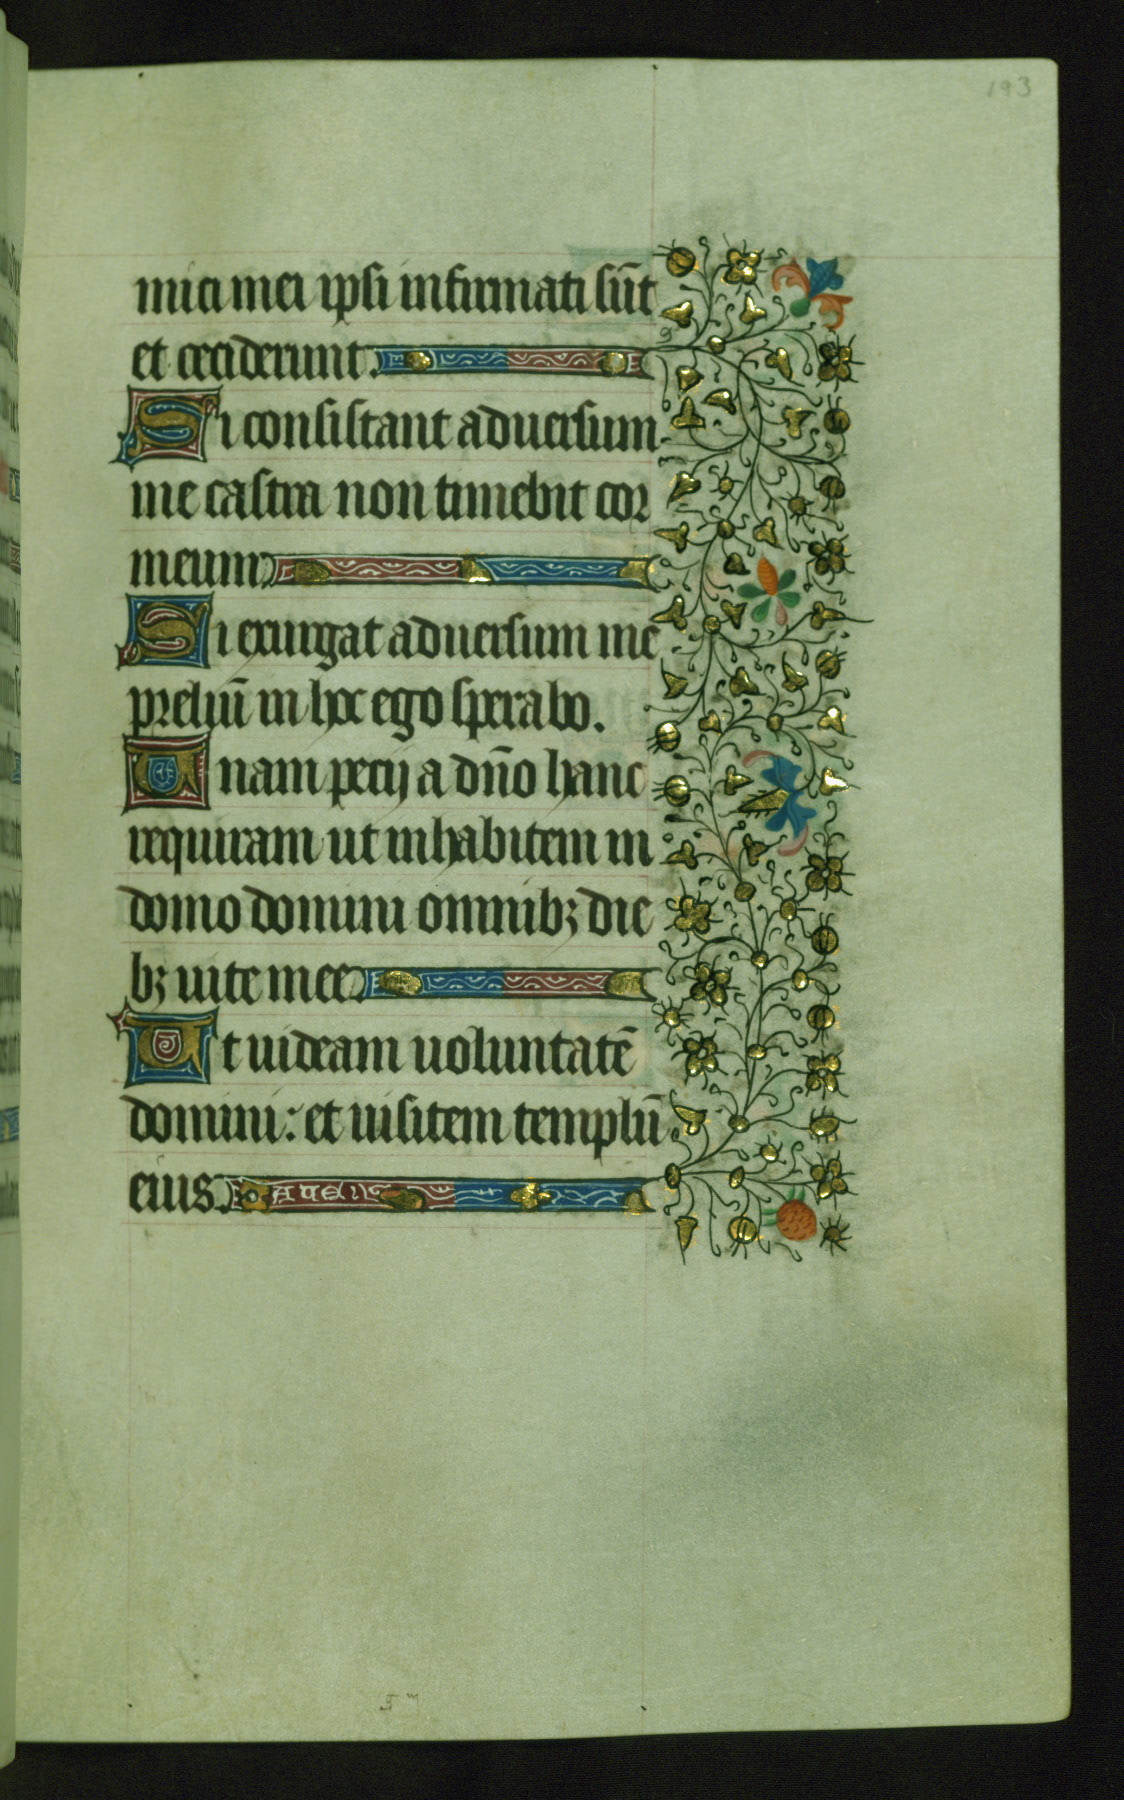 193
mici mei ipsi infirmati sūt
et ceciderunt.
Si consistant aduersum
me castra non timebit cor
meum
Si exurgat aduersum me
preliū in hoc ego sperabo.
Unam pecij a dn̄o hanc
requiram ut inhabitem in
domo domini omnibꝫ die
bꝫ uite mee
Ut uideam uoluntatē
domini: et uisitem templū
eius.